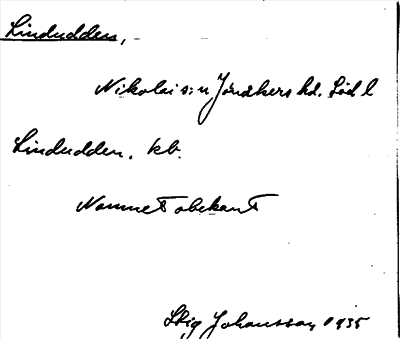 Lindudden,
Nikolai s:n Jönåkers hd. Söd l
Lindudden, kb.
Namnet obekant
Stig Johansson 1935